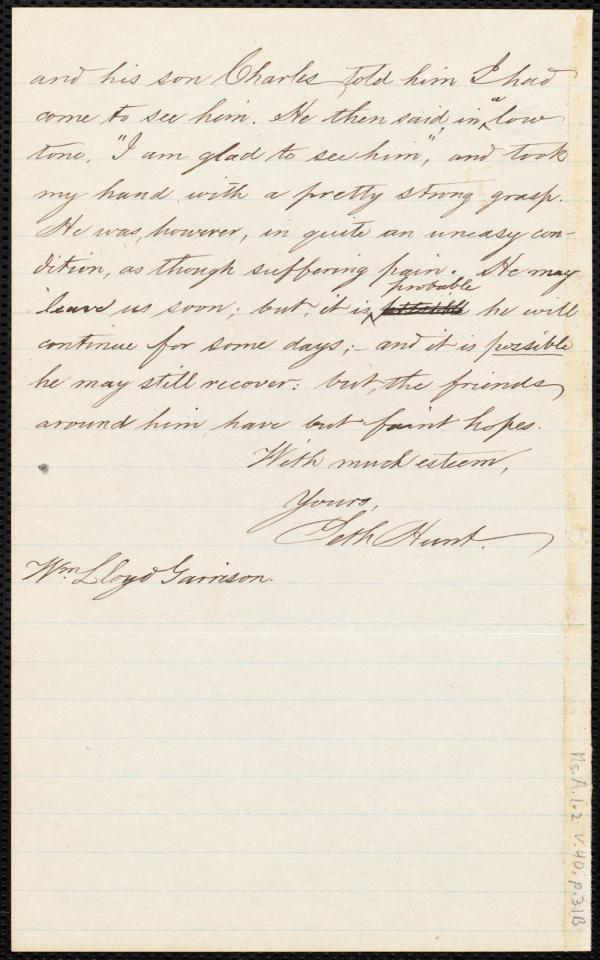 and his son Charles told him I had
come to see him. He then said, in a low
tone, "I am glad to see him", and took
my hand with a pretty strong grasp.
He was, however, in quite an uneasy con-
dition, as though suffering pain. He may
leave us soon; but, it is probable he will
continue for some days;- and it is possible
he may still recover: but, the friends
around him have but faint hopes.
With much esteem,
Yours,
Seth Hunt.
Wm Lloyd Garrison.
Ms. A. 1.2 v. 40, p. 31B